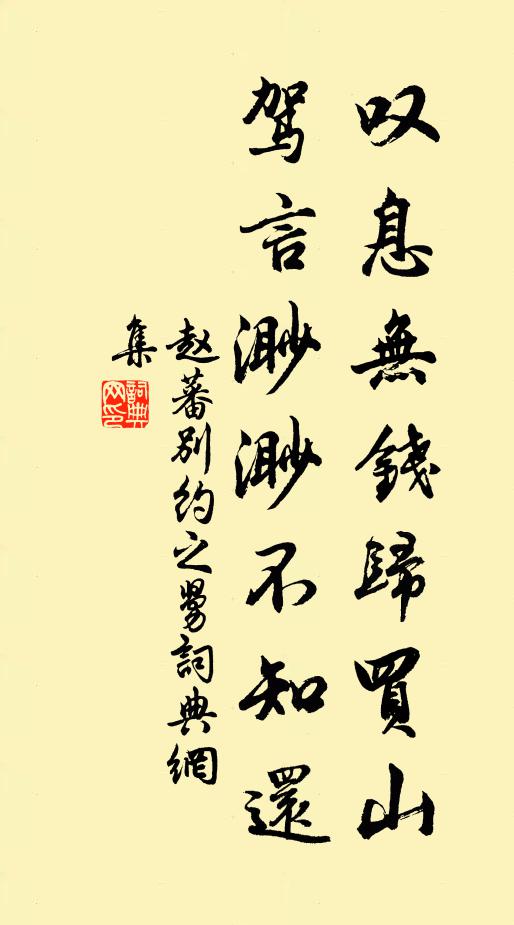 叹息無錢歸買山
駕言渺渺不知還
赵蕃別约之舅詞典網
集
詞典網印